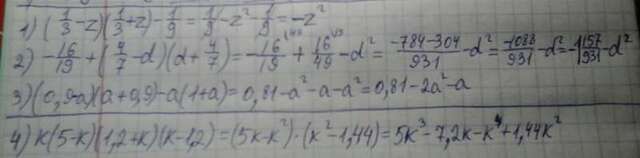 1) (1/3 - z)(1/3 + z) - 1/9 = 1/9 - z² - 1/9 = -z²
2) -16/19 + (4/7 - d)(d + 4/7) = -16/19 + 16/49 - d² = (-784-304)/931 - d² = -1088/931 - d² = -1 157/931 - d²
3) (0,9-a)(a+0,9)-a(1+a)=0,81-a²-a-a²=0,81-2a²-a
4) k(5-k)(1,2+k)(k-1,2)=(5k-k²)·(k²-1,44)=5k³-7,2k-k⁴+1,44k²